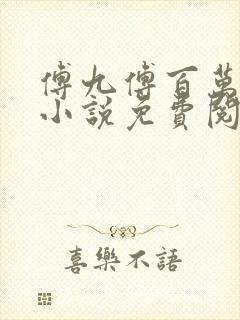 傅九傅百萬
小說免費閱
喜樂不語